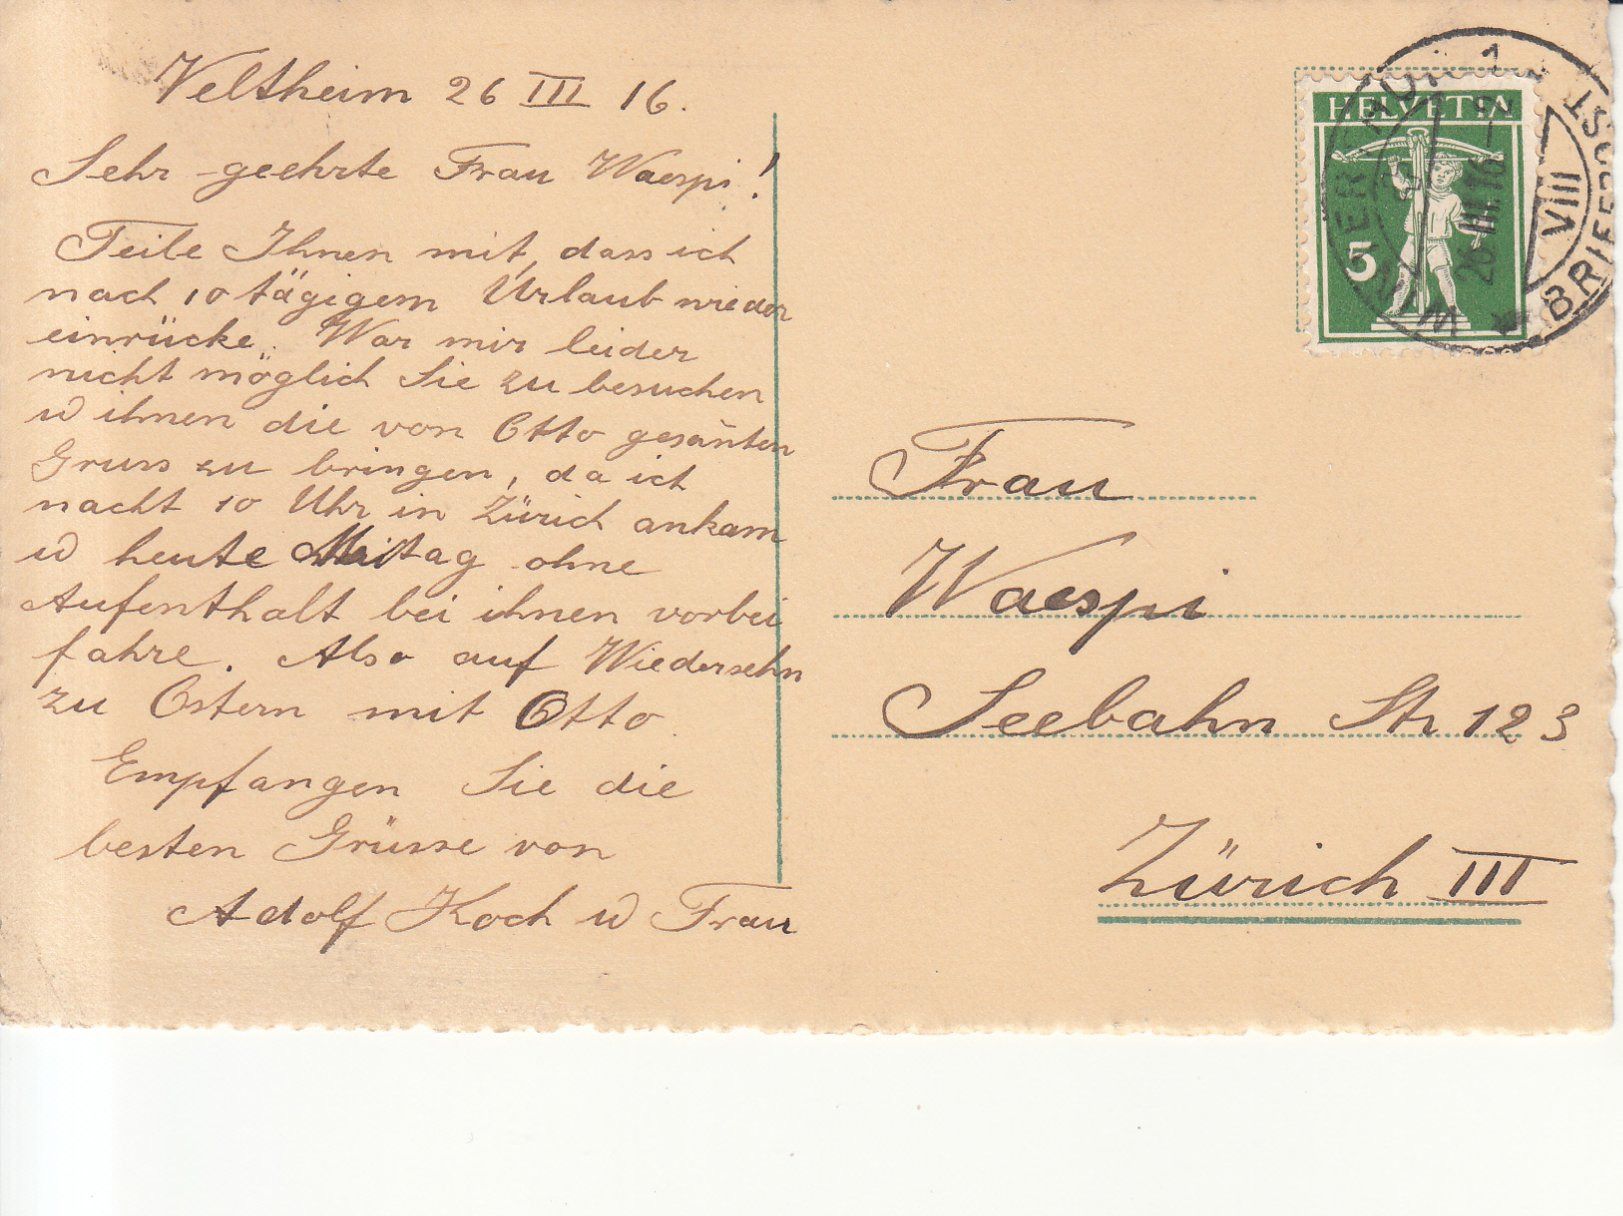 Veltheim 26 III 16.
Sehr geehrte Frau Waespi!
Teile Ihnen mit, dass ich
nach 10 tägigem Urlaub wieder
einrücke. War mir leider
nicht möglich Sie zu besuchen
u ihnen die von Otto gesan̄ten
Gruss zu bringen, da ich
nacht 10 Uhr in Zürich ankam
u heute Mittag ohne
Aufenthalt bei ihnen vorbei
fahre. Also auf Wiedersehn
zu Ostern mit Otto.
Empfangen Sie die
besten Grüsse von
Adolf Koch u Frau
HELVETIA
5
WINTERTHUR 1
26.III.16
VIII
BRIEFPOST
Frau
Waespi
Seebahn Str 123
Zürich III